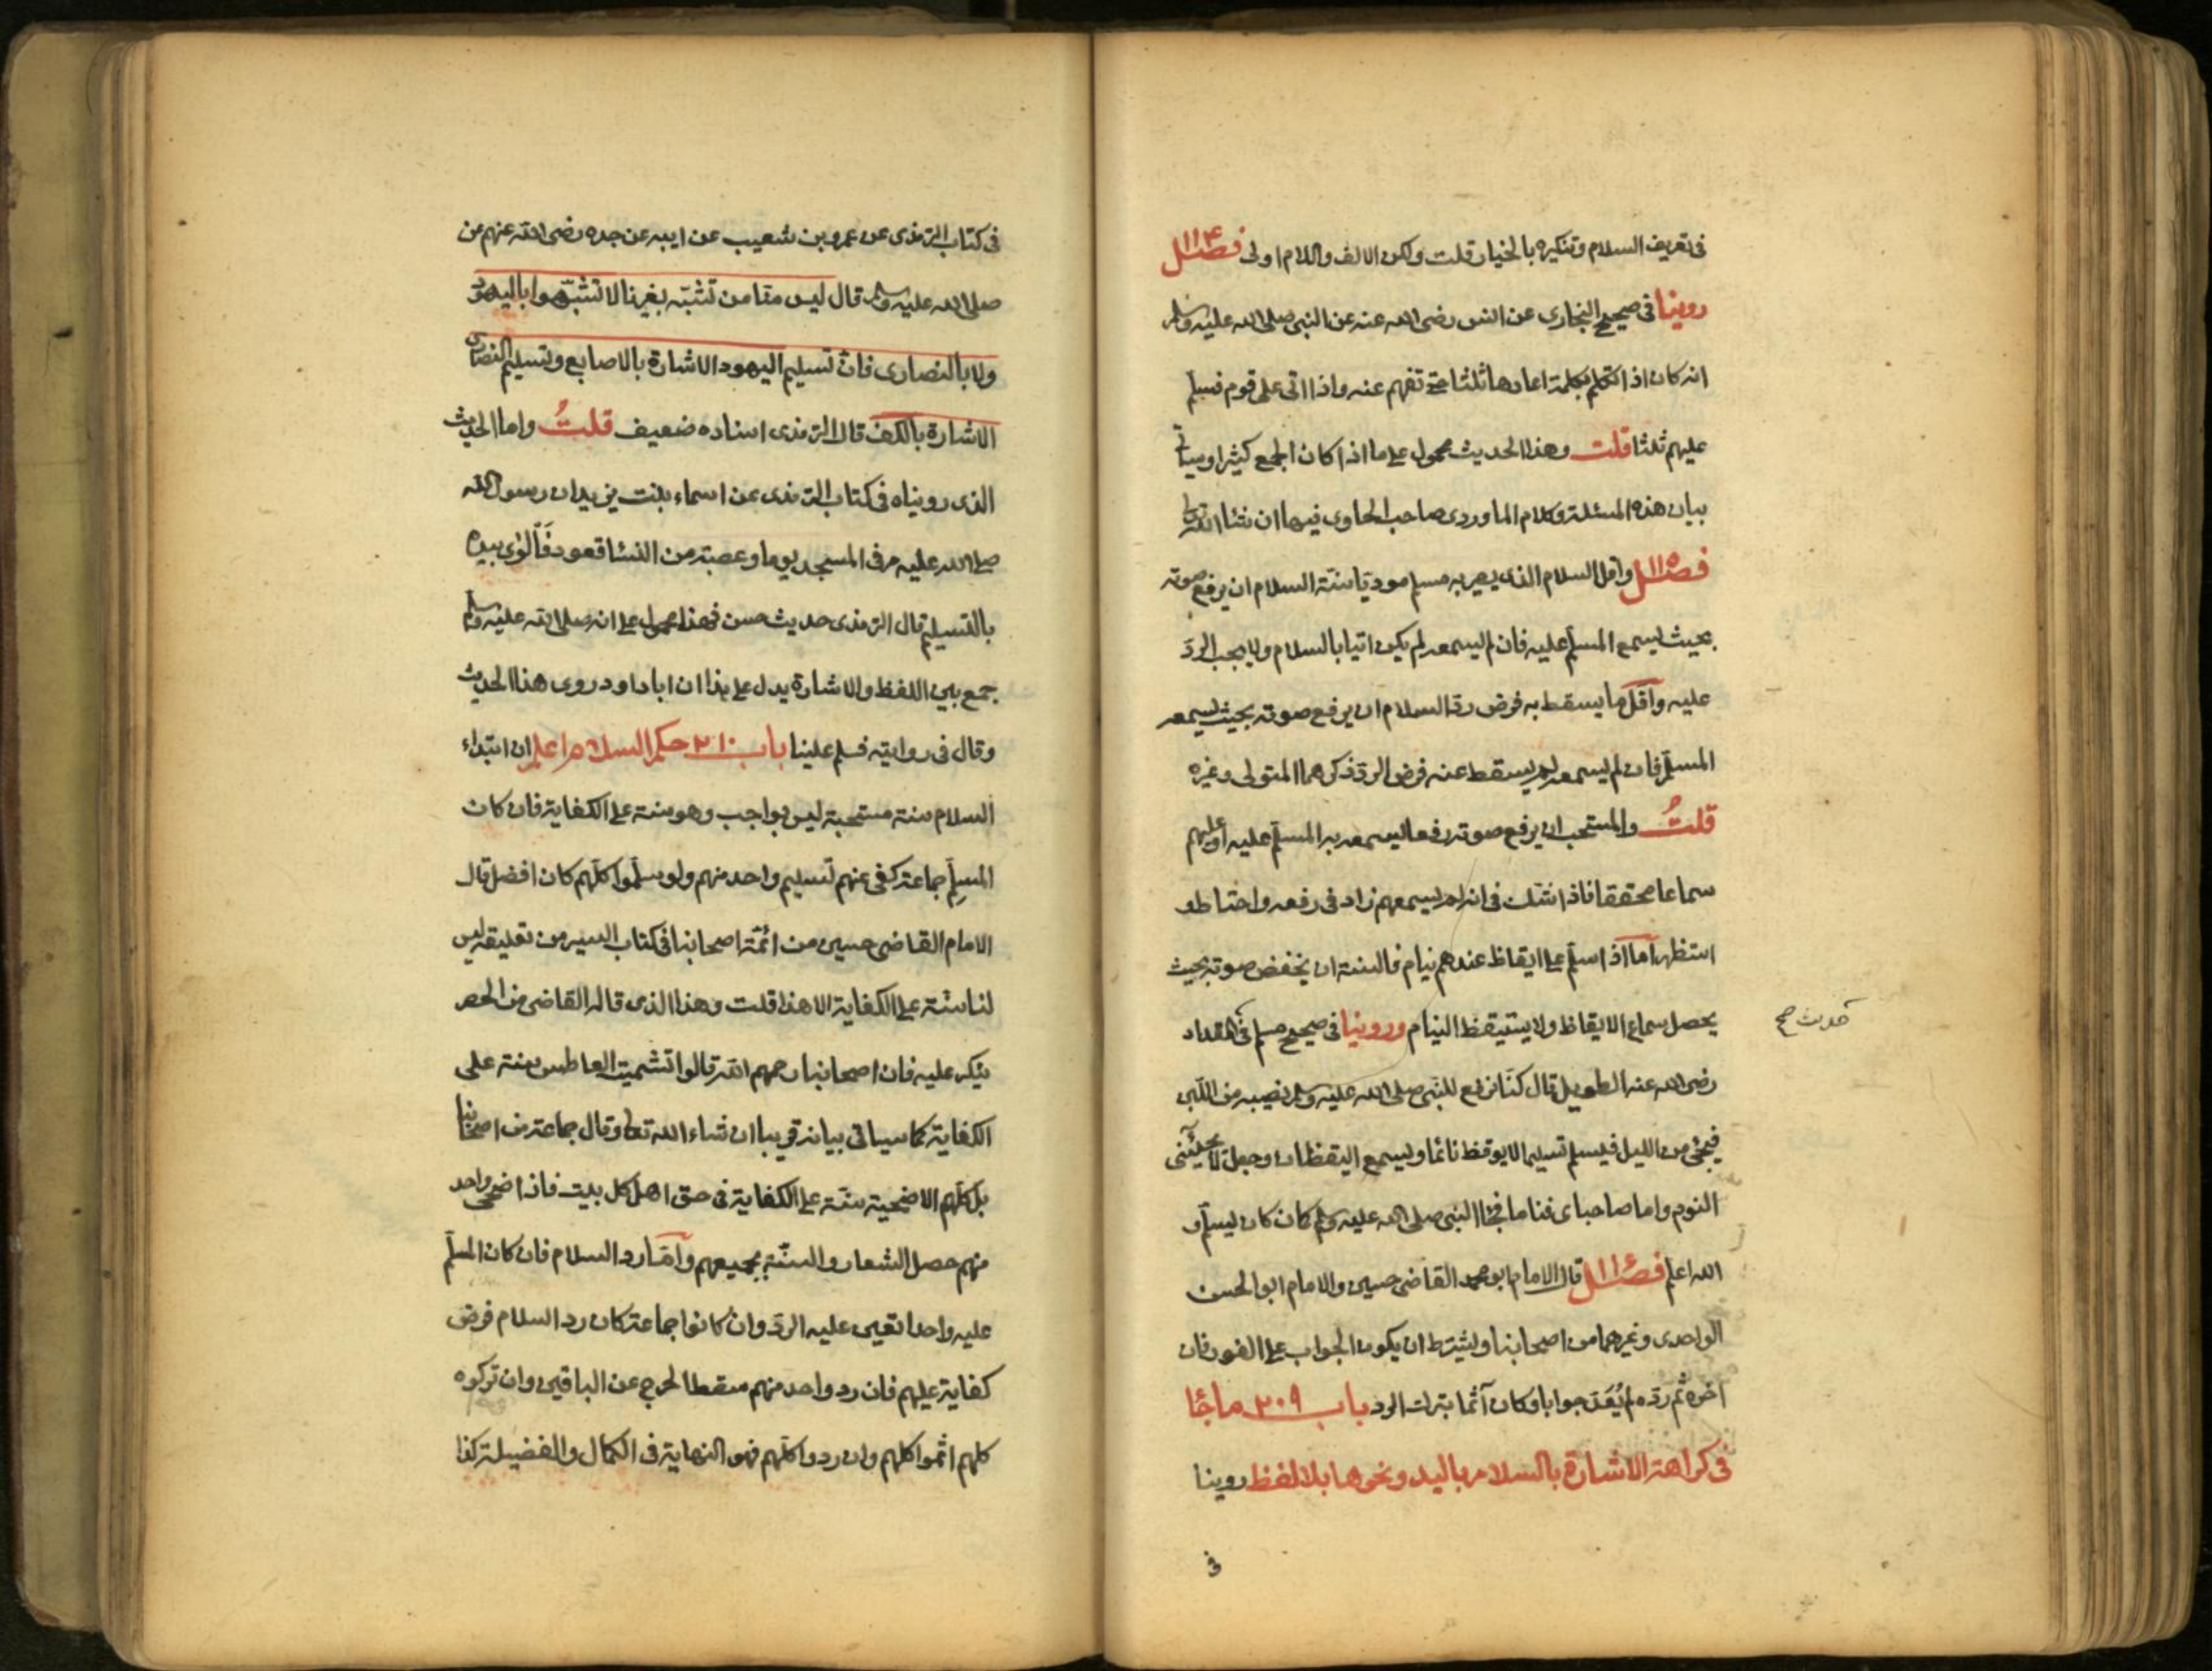 فى تعريف السلام وتنكيره بالخيار قلت ولكن الالف واللام اولى فصل ١١۴
روينا فى صحيح البخارى عن انس رضى الله عنه عن النبى صلى الله عليه وسلم
انه كان اذا تكلم بكلمة اعادها ثلثا حتى تفهم عنه واذا اتى على قوم فسلم
عليهم ثلثا قلت وهذا الحديث محمول على ما اذا كان الجمع كثيرا وسياتى
بيان هذه المسئلة وكلام الماوردى صاحب الحاوى فيها ان شاء الله تعالى
فصل ١١٥ واقل السلام الذى يصير به مسلم موديا سنة السلام ان يرفع صوته
بحيث يسمع المسلم عليه فان لم يسمعه لم يكن اتيا بالسلام ولا يجب الردّ
عليه واقل ما يسقط به فرض ردّ السلام ان يرفع صوته بحيث يسمعه
المسلم فان لم يسمعه لم يسقط عنه فرض الردّ ذكرهما المتولى وغيره
قلتُ والمستحب ان يرفع صوته رفعا يسمعه به المسلم عليه او عليهم
سماعا محققا فاذا شك فى انه لم يسمعهم زاد فى رفعه واحتاط و
استظهر اما اذا سلم على ايقاظ عندهم نيام فالسنة ان يخفض صوته بحيث
يحصل سماع الايقاظ ولا يستيقظ النيام وروينا فى صحيح مسلم فى المقداد
حديث صح
رضى الله عنه الطويل قال كنّا نرفع للنبى صلى الله عليه وسلم نصيبه من اللّبن
فيجئ من الليل فيسلم تسليما لا يوقظ نائما ويسمع اليقظان وجعل لا يجيئنى
النوم واما صاحباى فناما فجاء النبى صلى الله عليه وسلم كان كان يسلّم و
الله اعلم فصل ١١٦ قال الامام ابو محمد القاضى حسين والامام ابو الحسن
الواحدى وغيرهما من اصحابنا ويشترط ان يكون الجواب على الفور فان
اخره ثم ردّه لم يُعَدّ جوابا وكان آثما بترك الرد باب ٢٠٩ ما جاء
فى كراهة الاشارة بالسلام باليد ونحوها بلا لفظ روينا
فى
فى كتاب الترمذى عن عمرو بن شعيب عن ابيه عن جده رضى الله عنهم عن
صلى الله عليه وسلم قال ليس منّا من تشبّه بغيرنا لا تشبّهوا باليهود
ولا بالنصارى فانّ تسليم اليهود الاشارة بالاصابع وتسليم النصارى
الاشارة بالكف قال الترمذى اسناده ضعيف قلتُ واما الحديث
الذى رويناه فى كتاب الترمذى عن اسماء بنت يزيد ان رسول الله
صلى الله عليه مر فى المسجد يوما وعصبة من النساء قعود فَاَلْوٰى بيده
بالتسليم قال الترمذى حديث حسن فهذا محمول على انه صلى الله عليه وسلم
جمع بين اللفظ والاشارة يدل على هذا ان ابا داود روى هذا الحديث
وقال فى روايته فسلم علينا باب ٢١٠ حكم السلام اعلم ان ابتداء
السلام سنة مستحبة ليس بواجب وهو سنة على الكفاية فان كان
المسلِّم جماعة كفى عنهم تسليم واحد منهم ولو سلّموا كلّهم كان افضل قال
الامام القاضى حسين من ائمّة اصحابنا فى كتاب السير من تعليقه ليس
لنا سنّة على الكفاية الا هذا قلت وهذا الذى قاله القاضى من الحصر
ينكر عليه فان اصحابنا رحمهم الله قالوا تشميت العاطس سنة على
الكفاية كما سياتى بيانه قريبا ان شاء الله تعالى وقال جماعة من اصحابنا
بل كلّهم الاضحية سنّة على الكفاية فى حق اهل كل بيت فاذا ضحى واحد
منهم حصل الشعار والسنّة بجميعهم وامّا رد السلام فان كان المسلّم
عليه واحدا تعين عليه الردّ وان كانوا جماعة كان رد السلام فرض
كفاية عليهم فان رد واحد منهم سقط الحرج عن الباقين وان تركوه
كلهم اثموا كلهم وان ردوا كلّهم فهو النهاية فى الكمال والفضيلة كذا